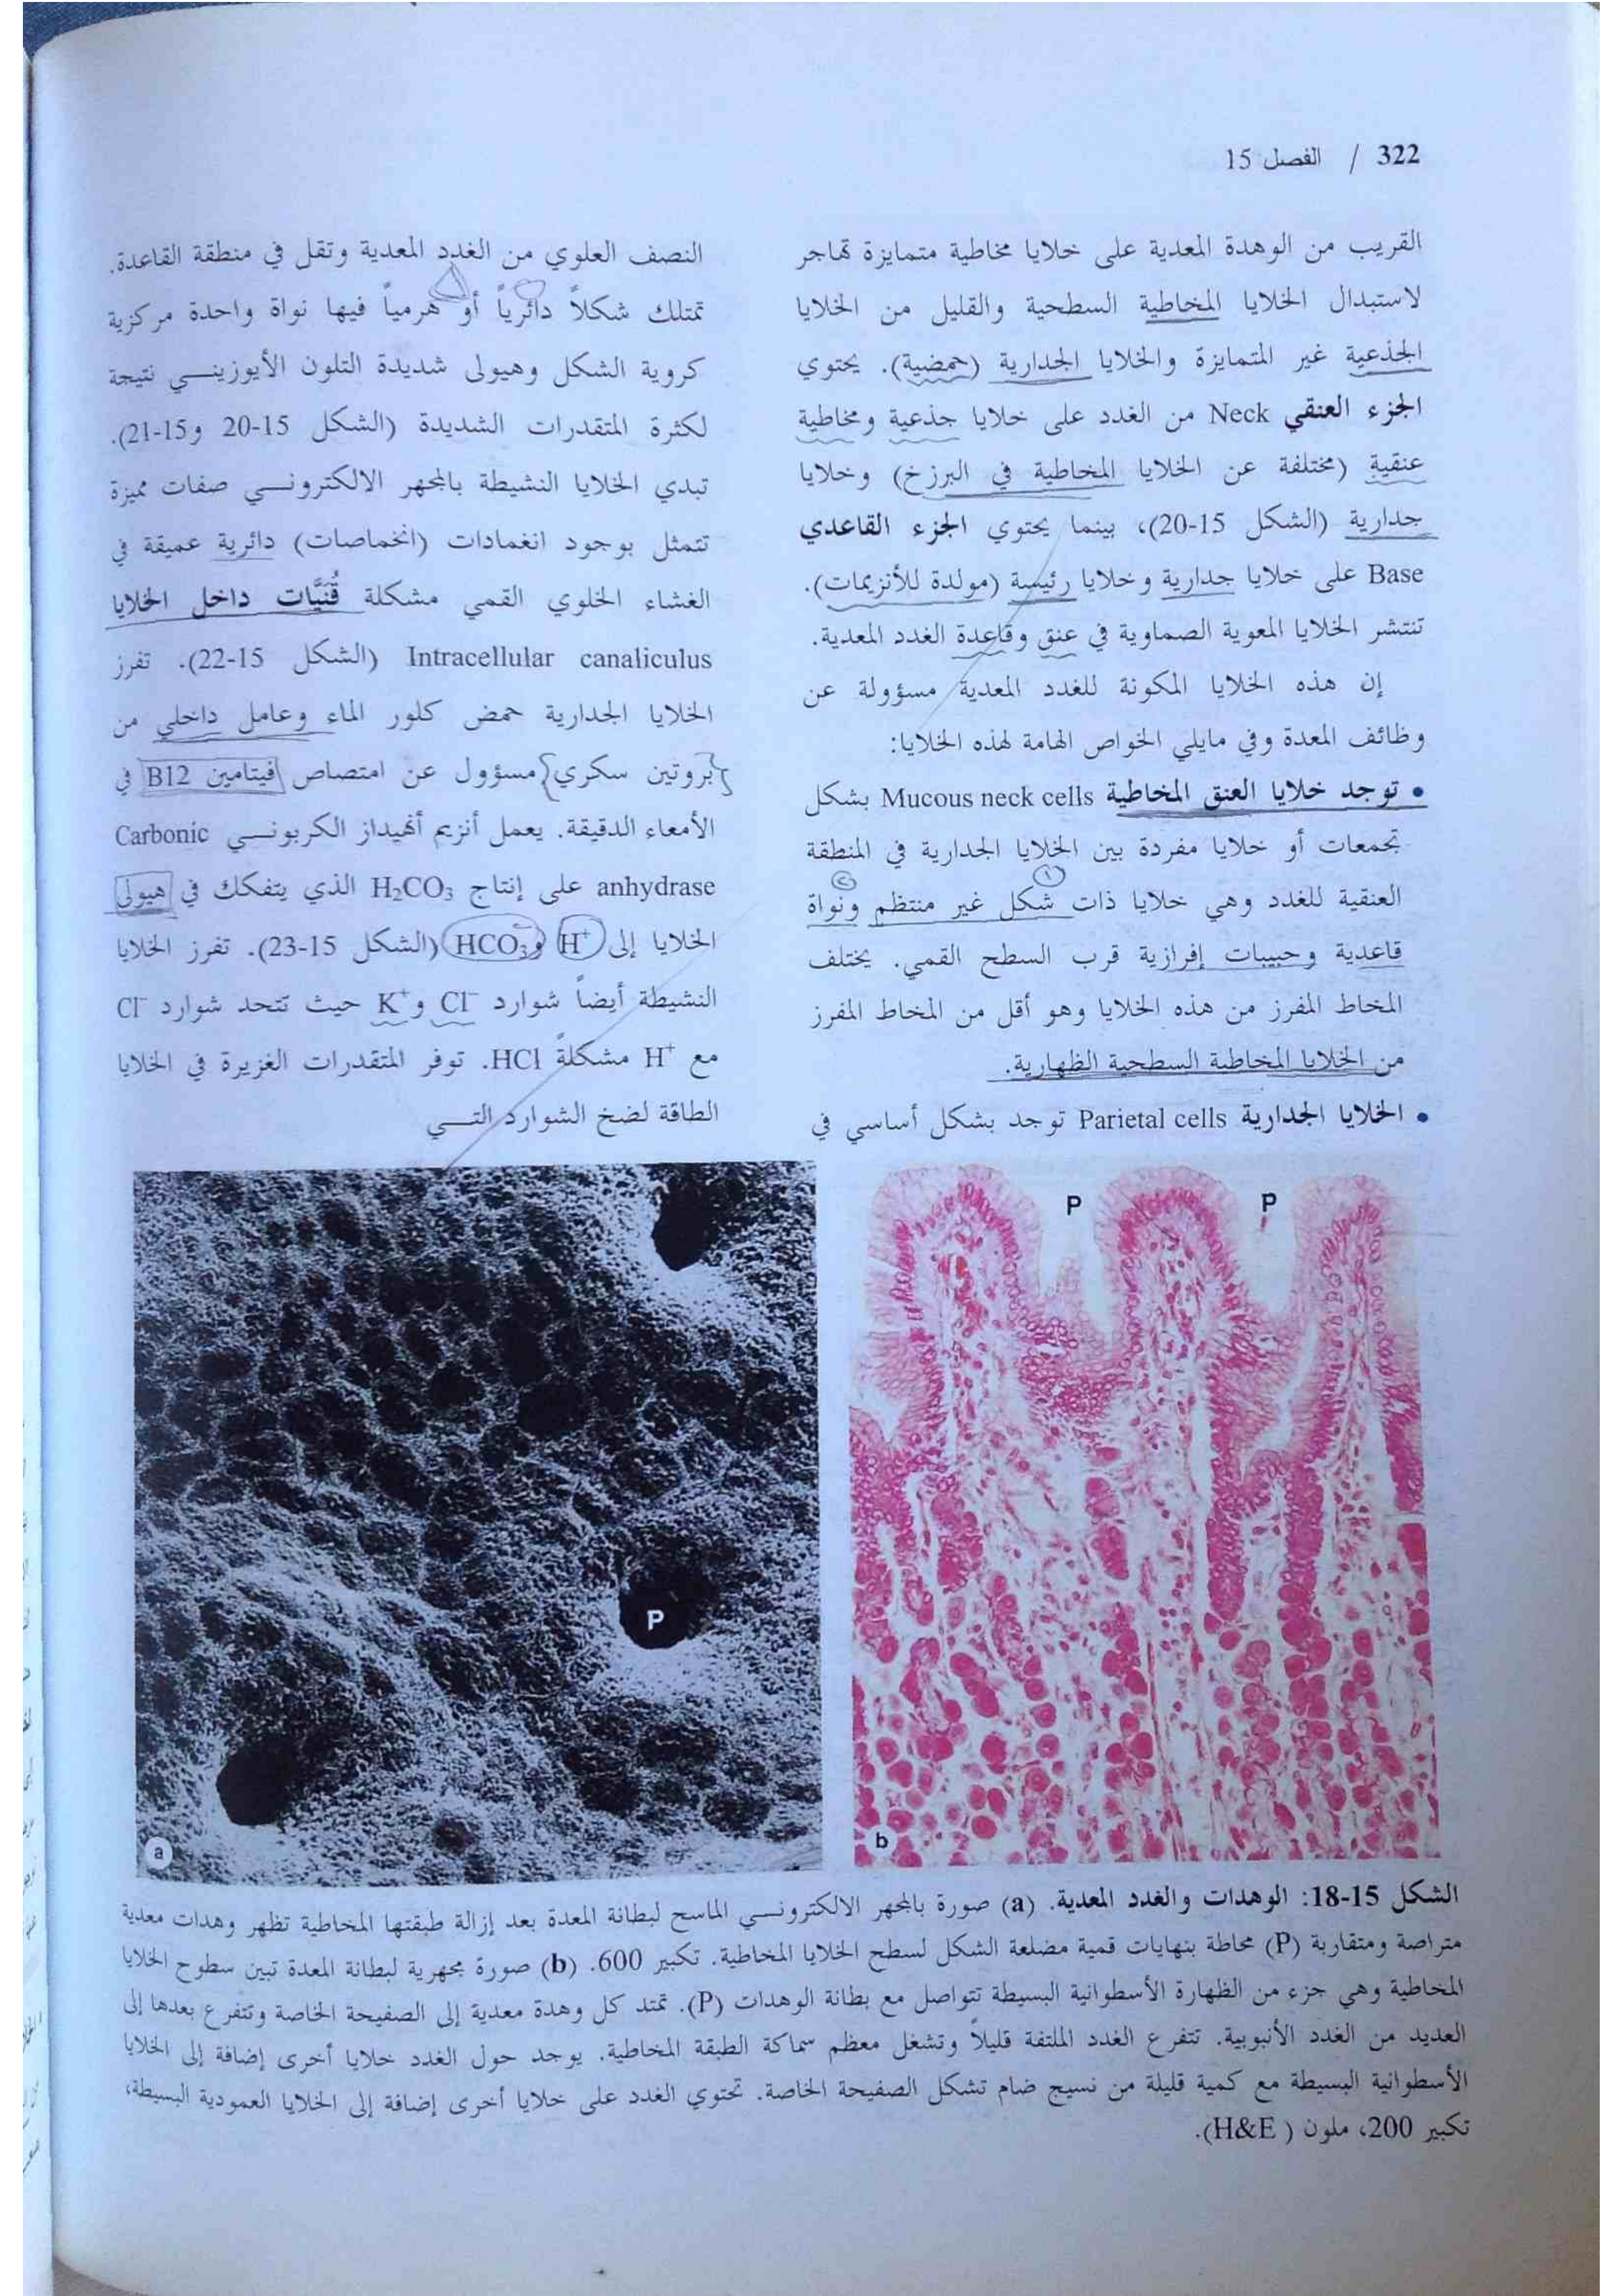 322 / الفصل 15
القريب من الوهدة المعدية على خلايا مخاطية متمايزة تهاجر
لاستبدال الخلايا المخاطية السطحية والقليل من الخلايا
الجذعية غير المتمايزة والخلايا الجدارية (حمضية). يحتوي
الجزء العنقي Neck من الغدد على خلايا جذعية ومخاطية
عنقية (مختلفة عن الخلايا المخاطية في البرزخ) وخلايا
جدارية (الشكل 15-20)، بينما يحتوي الجزء القاعدي
Base على خلايا جدارية وخلايا رئيسة (مولدة للأنزيمات).
تنتشر الخلايا المعوية الصماوية في عنق وقاعدة الغدد المعدية.
إن هذه الخلايا المكونة للغدد المعدية مسؤولة عن
وظائف المعدة وفي مايلي الخواص الهامة لهذه الخلايا:
• توجد خلايا العنق المخاطية Mucous neck cells بشكل
تجمعات أو خلايا مفردة بين الخلايا الجدارية في المنطقة
العنقية للغدد وهي خلايا ذات شكل غير منتظم ونواة
قاعدية وحبيبات إفرازية قرب السطح القمي. يختلف
المخاط المفرز من هذه الخلايا وهو أقل من المخاط المفرز
من الخلايا المخاطية السطحية الظهارية.
• الخلايا الجدارية Parietal cells توجد بشكل أساسي في
النصف العلوي من الغدد المعدية وتقل في منطقة القاعدة.
تمتلك شكلاً دائرياً أو هرمياً فيها نواة واحدة مركزية
كروية الشكل وهيولى شديدة التلون الأيوزيني نتيجة
لكثرة المتقدرات الشديدة (الشكل 15-20 و15-21).
تبدي الخلايا النشيطة بالمجهر الالكتروني صفات مميزة
تتمثل بوجود انغمادات (انخماصات) دائرية عميقة في
الغشاء الخلوي القمي مشكلة قُنَيَّات داخل الخلايا
Intracellular canaliculus (الشكل 15-22). تفرز
الخلايا الجدارية حمض كلور الماء وعامل داخلي من
{بروتين سكري} مسؤول عن امتصاص فيتامين B12 في
الأمعاء الدقيقة. يعمل أنزيم أنهيداز الكربوني Carbonic
anhydrase على إنتاج H₂CO₃ الذي يتفكك في هيولى
الخلايا إلى H⁺ وHCO₃⁻ (الشكل 15-23). تفرز الخلايا
النشيطة أيضاً شوارد Cl⁻ وK⁺ حيث تتحد شوارد Cl⁻
مع H⁺ مشكلةً HCl. توفر المتقدرات الغزيرة في الخلايا
الطاقة لضخ الشوارد التي
P P
P
a
b
الشكل 15-18: الوهدات والغدد المعدية. (a) صورة بالمجهر الالكتروني الماسح لبطانة المعدة بعد إزالة طبقتها المخاطية تظهر وهدات معدية
متراصة ومتقاربة (P) محاطة بنهايات قمية مضلعة الشكل لسطح الخلايا المخاطية. تكبير 600. (b) صورة مجهرية لبطانة المعدة تبين سطوح الخلايا
المخاطية وهي جزء من الظهارة الأسطوانية البسيطة تتواصل مع بطانة الوهدات (P). تمتد كل وهدة معدية إلى الصفيحة الخاصة وتتفرع بعدها إلى
العديد من الغدد الأنبوبية. تتفرع الغدد الملتفة قليلاً وتشغل معظم سماكة الطبقة المخاطية. يوجد حول الغدد خلايا أخرى إضافة إلى الخلايا
الأسطوانية البسيطة مع كمية قليلة من نسيج ضام تشكل الصفيحة الخاصة. تحتوي الغدد على خلايا أخرى إضافة إلى الخلايا العمودية البسيطة،
تكبير 200، ملون (H&E ).